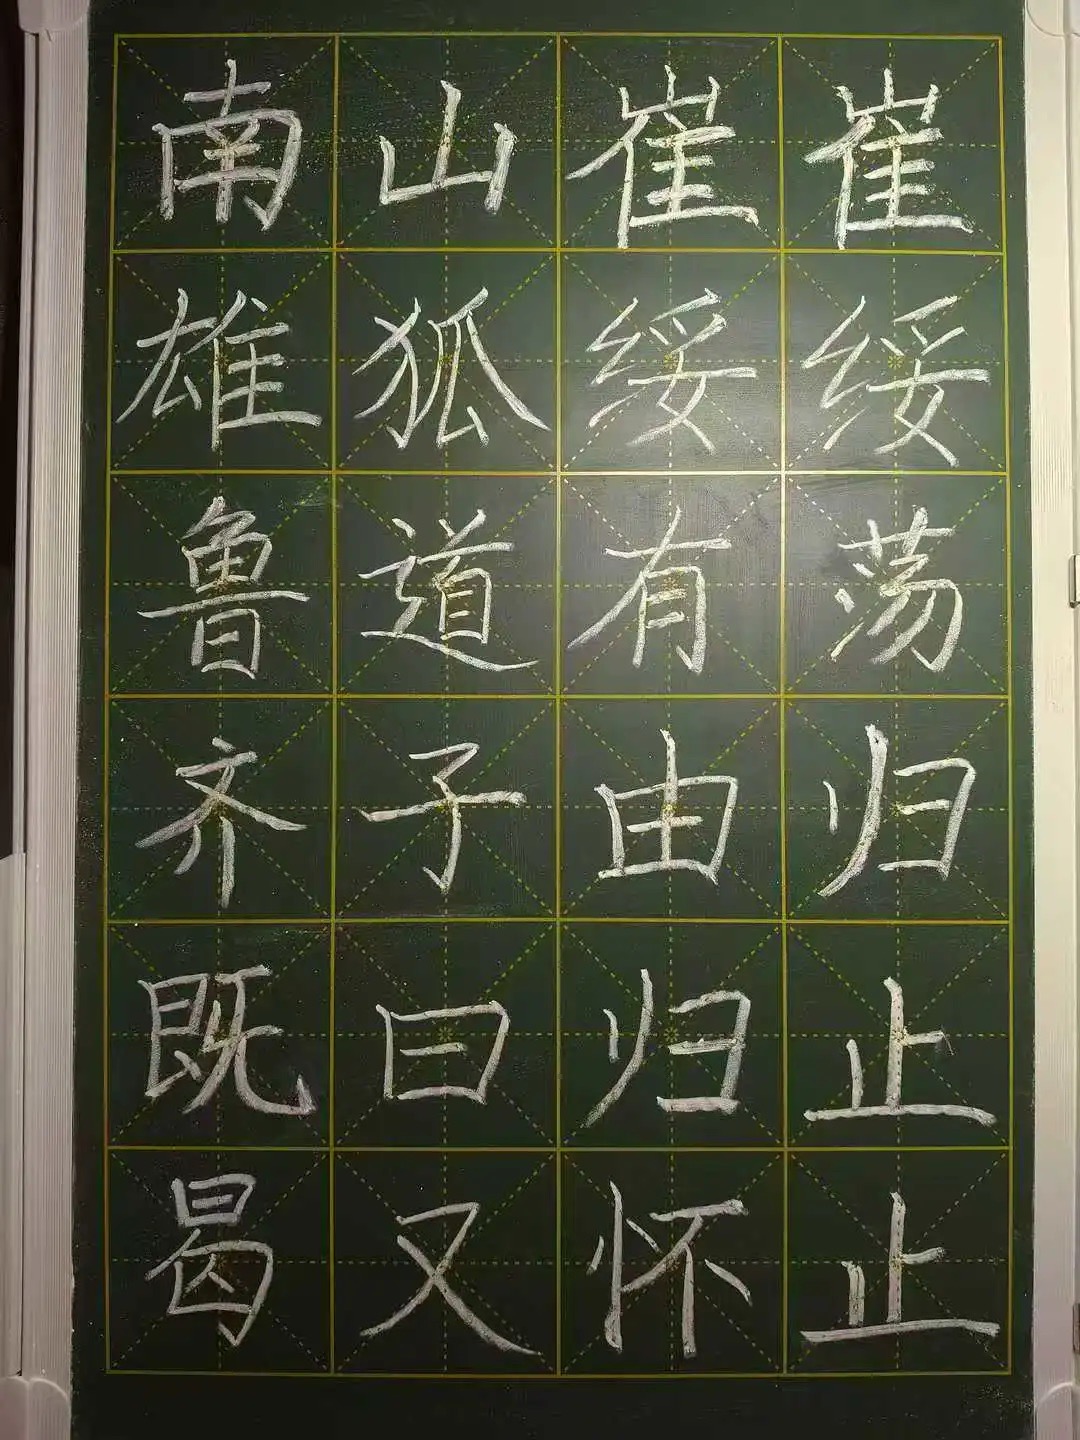 南山崔崔
雄狐绥绥
鲁道有荡
齐子由归
既曰归止
曷又怀止